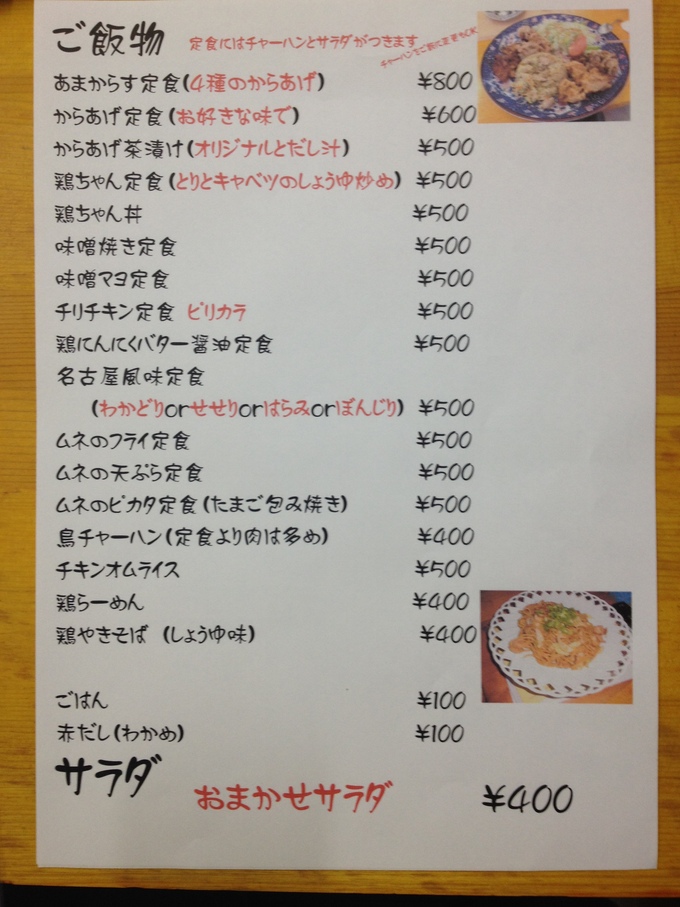 ご飯物 定食にはチャーハンとサラダがつきます
チャーハンをご飯に変更もOK
あまからす定食(4種のからあげ) ¥800
からあげ定食(お好きな味で) ¥600
からあげ茶漬け(オリジナルとだし汁) ¥500
鶏ちゃん定食(とりとキャベツのしょうゆ炒め) ¥500
鶏ちゃん丼 ¥500
味噌焼き定食 ¥500
味噌マヨ定食 ¥500
チリチキン定食 ピリカラ ¥500
鶏にんにくバター醤油定食 ¥500
名古屋風味定食
(わかどりorせせりorはらみorぼんじり) ¥500
ムネのフライ定食 ¥500
ムネの天ぷら定食 ¥500
ムネのピカタ定食(たまご包み焼き) ¥500
鳥チャーハン(定食より肉は多め) ¥400
チキンオムライス ¥500
鶏らーめん ¥400
鶏やきそば (しょうゆ味) ¥400
ごはん ¥100
赤だし(わかめ) ¥100
サラダ
おまかせサラダ ¥400